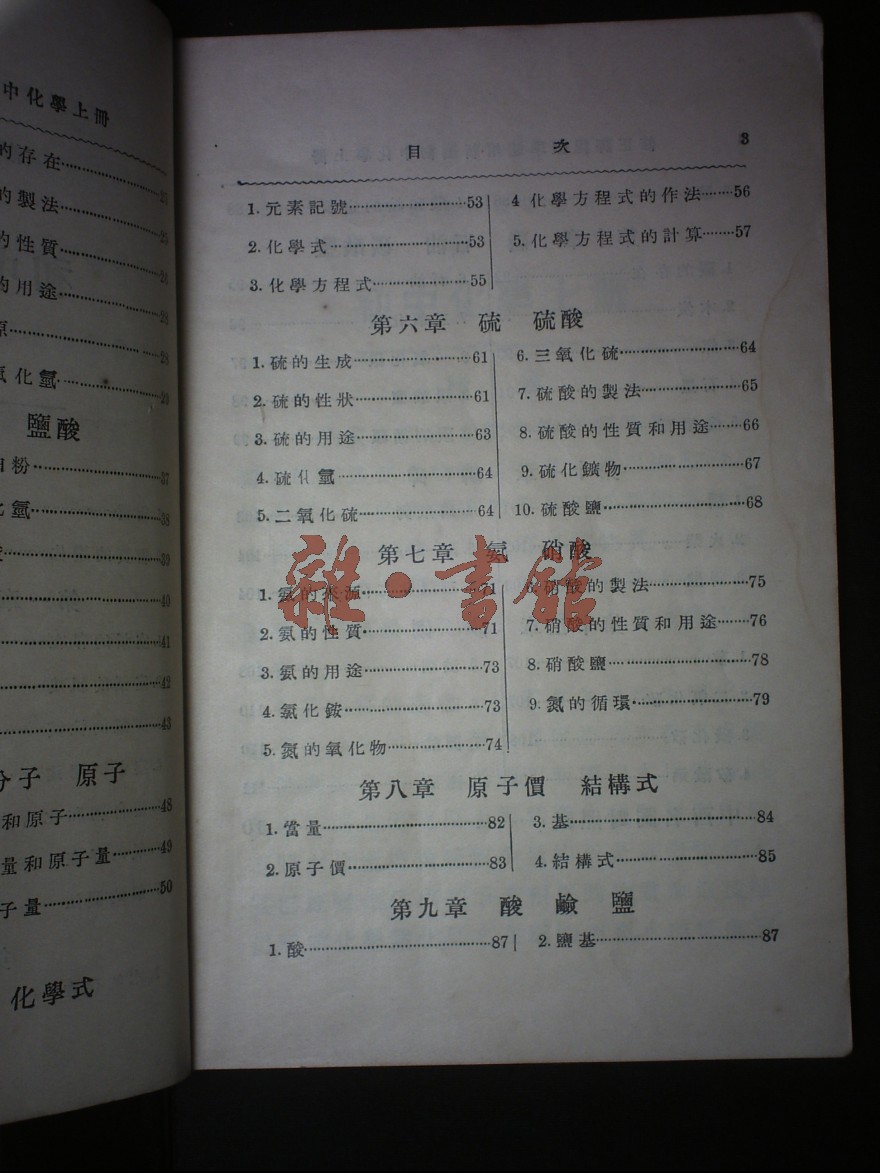 中化學上冊
的存在
的製法 25
的性質 26
的用途 28
28
化氫
鹽酸
粉 37
氫 38
39
40
41
42
43
分子 原子
和原子 48
量和原子量 49
子量 50
化學式
目 次 3
1. 元素記號 53
2. 化學式 53
3. 化學方程式 55
4 化學方程式的作法 56
5. 化學方程式的計算 57
第六章 硫 硫酸
1. 硫的生成 61
2. 硫的性狀 61
3. 硫的用途 63
4. 硫化氫 64
5. 二氧化硫 64
6. 三氧化硫 64
7. 硫酸的製法 65
8. 硫酸的性質和用途 66
9. 硫化鑛物 67
10. 硫酸鹽 68
第七章 氨 硝酸
1. 氨的來源 71
2. 氨的性質 71
3. 氨的用途 73
4. 氯化銨 73
5. 氮的氧化物 74
6. 硝酸的製法 75
7. 硝酸的性質和用途 76
8. 硝酸鹽 78
9. 氮的循環 79
第八章 原子價 結構式
1. 當量 82
2. 原子價 83
3. 基 84
4. 結構式 85
第九章 酸 鹼 鹽
1. 酸 87
2. 鹽基 87
雜·書館